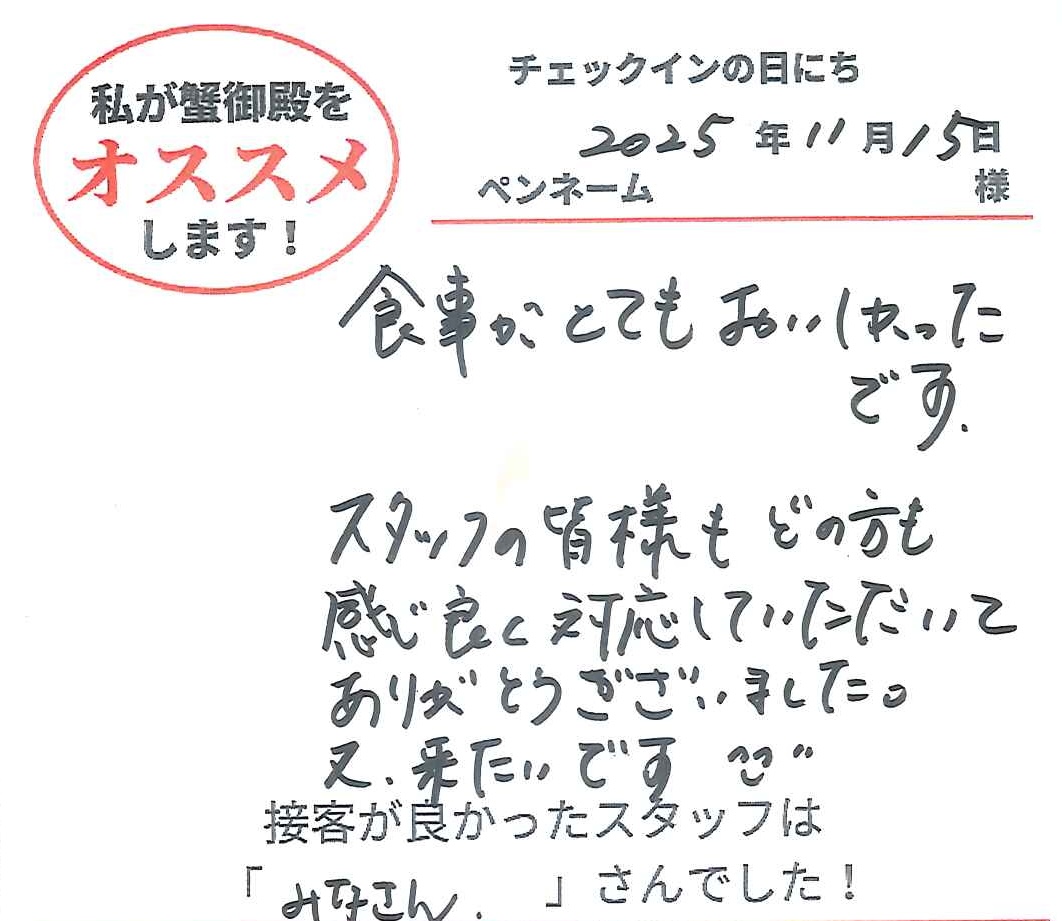 私が蟹御殿を
オススメ
します！
チェックインの日にち
2025年11月15日
ペンネーム 様
食事がとてもおいしかった
です.
スタッフの皆様もどの方も
感じ良く対応していただいて
ありがとうございました。
又、来たいです ^^
接客が良かったスタッフは
「みなさん.」さんでした！